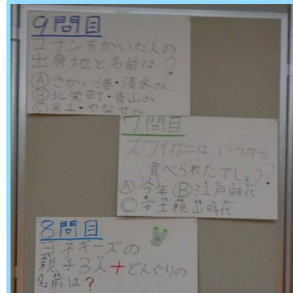 9問目
コナンをかいた人の
出身地と名前は?
Ⓐさかい港・清水さん
Ⓑ北栄町・青山さん
Ⓒ米子・やなせさん
7問目
ズワイガニは、いつから
食べられたでしょう?
Ⓐ今年 Ⓑ江戸時代
Ⓒ安土桃山時代
8問目
ヨネギーズの
親子3人+どんぐりの
名前は?